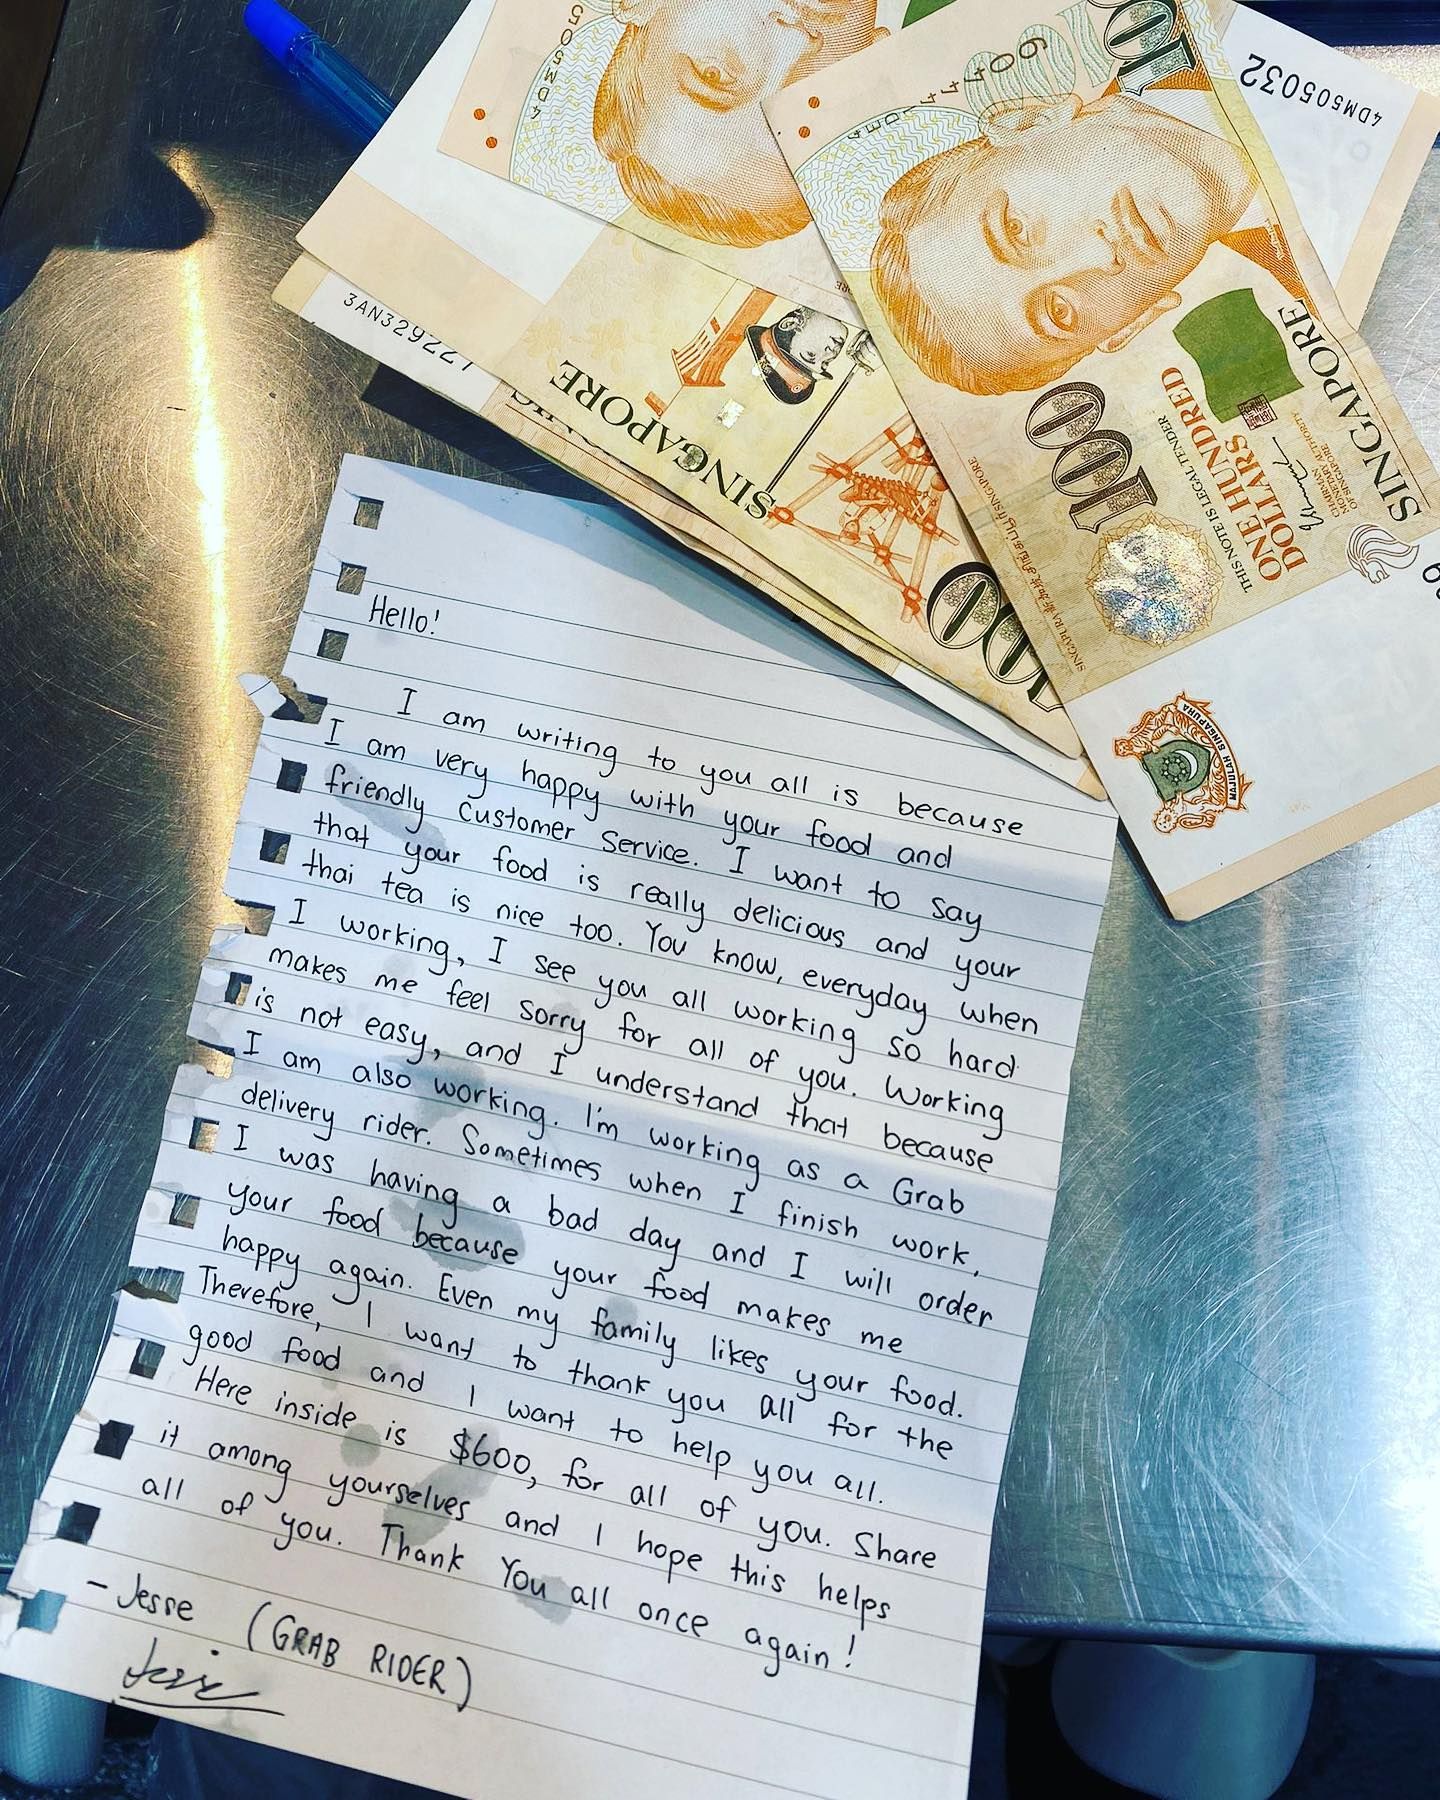 4DM505032
4DM505
3AN329227
SINGAPORE
100
100
ONE HUNDRED
DOLLARS
THIS NOTE IS LEGAL TENDER
CHAIRMAN
MONETARY AUTHORITY
OF SINGAPORE
SINGAPORE
SINGAPORE
MAJULAH SINGAPURA
Hello!
I am writing to you all is because
I am very happy with your food and
friendly customer service. I want to say
that your food is really delicious and your
thai tea is nice too. You know, everyday when
I working, I see you all working so hard
makes me feel sorry for all of you. Working
is not easy, and I understand that because
I am also working. I'm working as a Grab
delivery rider. Sometimes when I finish work,
I was having a bad day and I will order
your food because your food makes me
happy again. Even my family likes your food.
Therefore, I want to thank you all for the
good food and I want to help you all.
Here inside is $600, for all of you. Share
it among yourselves and I hope this helps
all of you. Thank You all once again!
- Jesse (GRAB RIDER)